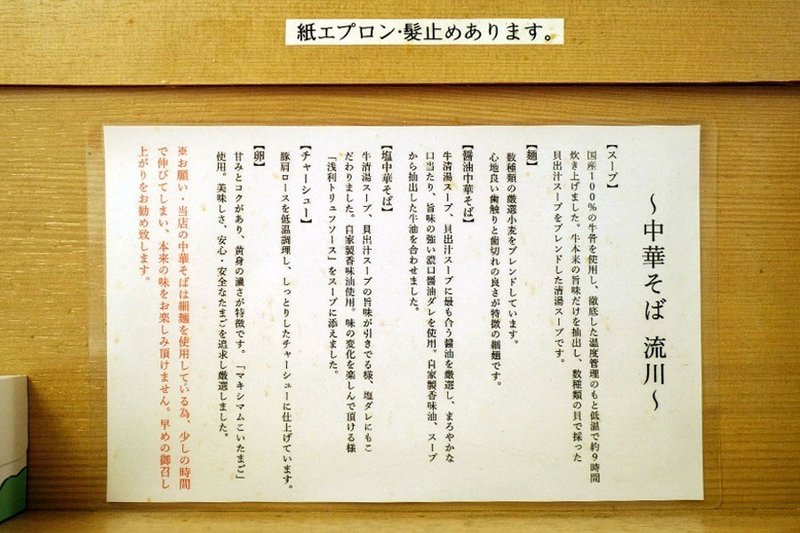 紙エプロン・髪止めあります。
～中華そば 流川～
【スープ】
国産100％の牛骨を使用し、徹底した温度管理のもと低温で約9時間
炊き上げました。牛本来の旨味だけを抽出し、数種類の貝で採った
貝出汁スープをブレンドした清湯スープです。
【麺】
数種類の厳選小麦をブレンドしています。
心地良い歯触りと歯切れの良さが特徴の細麺です。
【醤油中華そば】
牛清湯スープ、貝出汁スープに最も合う醤油を厳選し、まろやかな
口当たり、旨味の強い濃口醤油ダレを使用。自家製香味油、スープ
から抽出した牛油を合わせました。
【塩中華そば】
牛清湯スープ、貝出汁スープの旨味が引きでる様、塩ダレにもこ
だわりました。自家製香味油使用。味の変化を楽しんで頂ける様
「浅利トリュフソース」をスープに添えました。
【チャーシュー】
豚肩ロースを低温調理し、しっとりしたチャーシューに仕上げています。
【卵】
甘みとコクがあり、黄身の濃さが特徴です。「マキシマムこいたまご」
使用。美味しさ、安心・安全なたまごを追求し厳選しました。
※お願い・当店の中華そばは細麺を使用している為、少しの時間
で伸びてしまい、本来の味をお楽しみ頂けません。早めの御召し
上がりをお勧め致します。